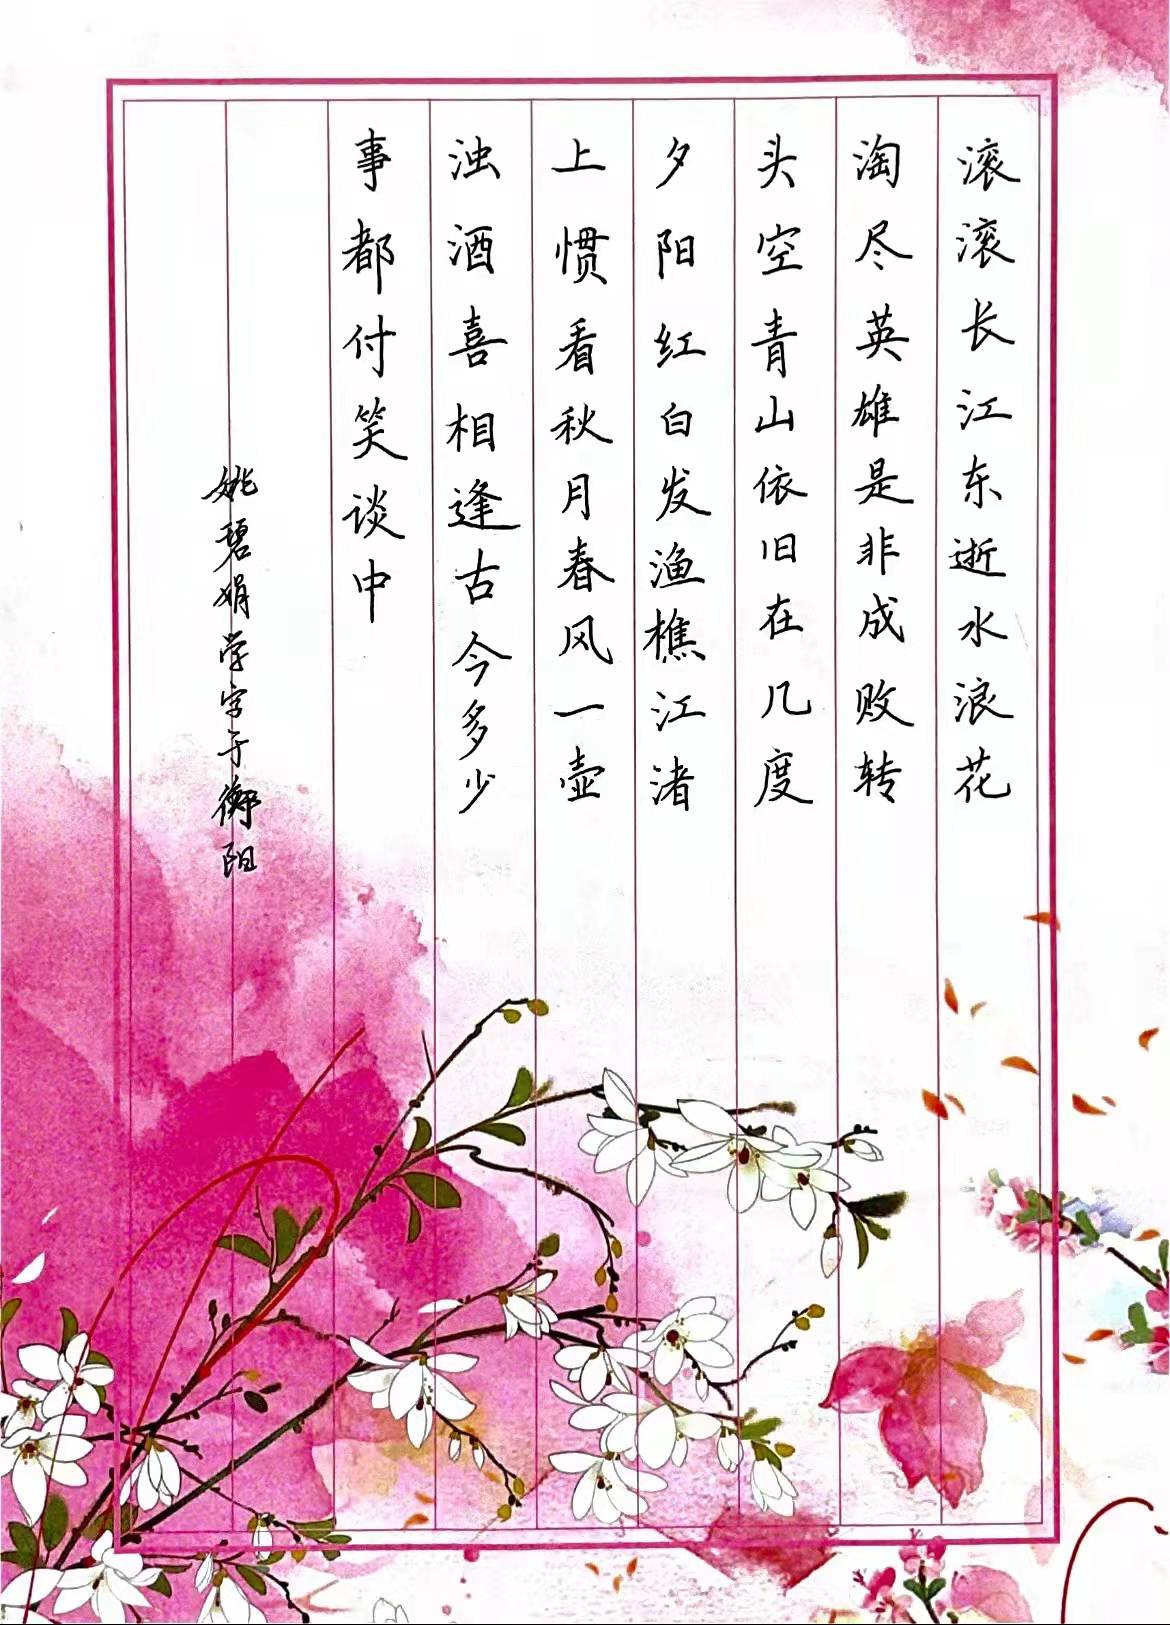 滚滚长江东逝水浪花
淘尽英雄是非成败转
头空青山依旧在几度
夕阳红白发渔樵江渚
上惯看秋月春风一壶
浊酒喜相逢古今多少
事都付笑谈中
姚碧娟学字于衡阳